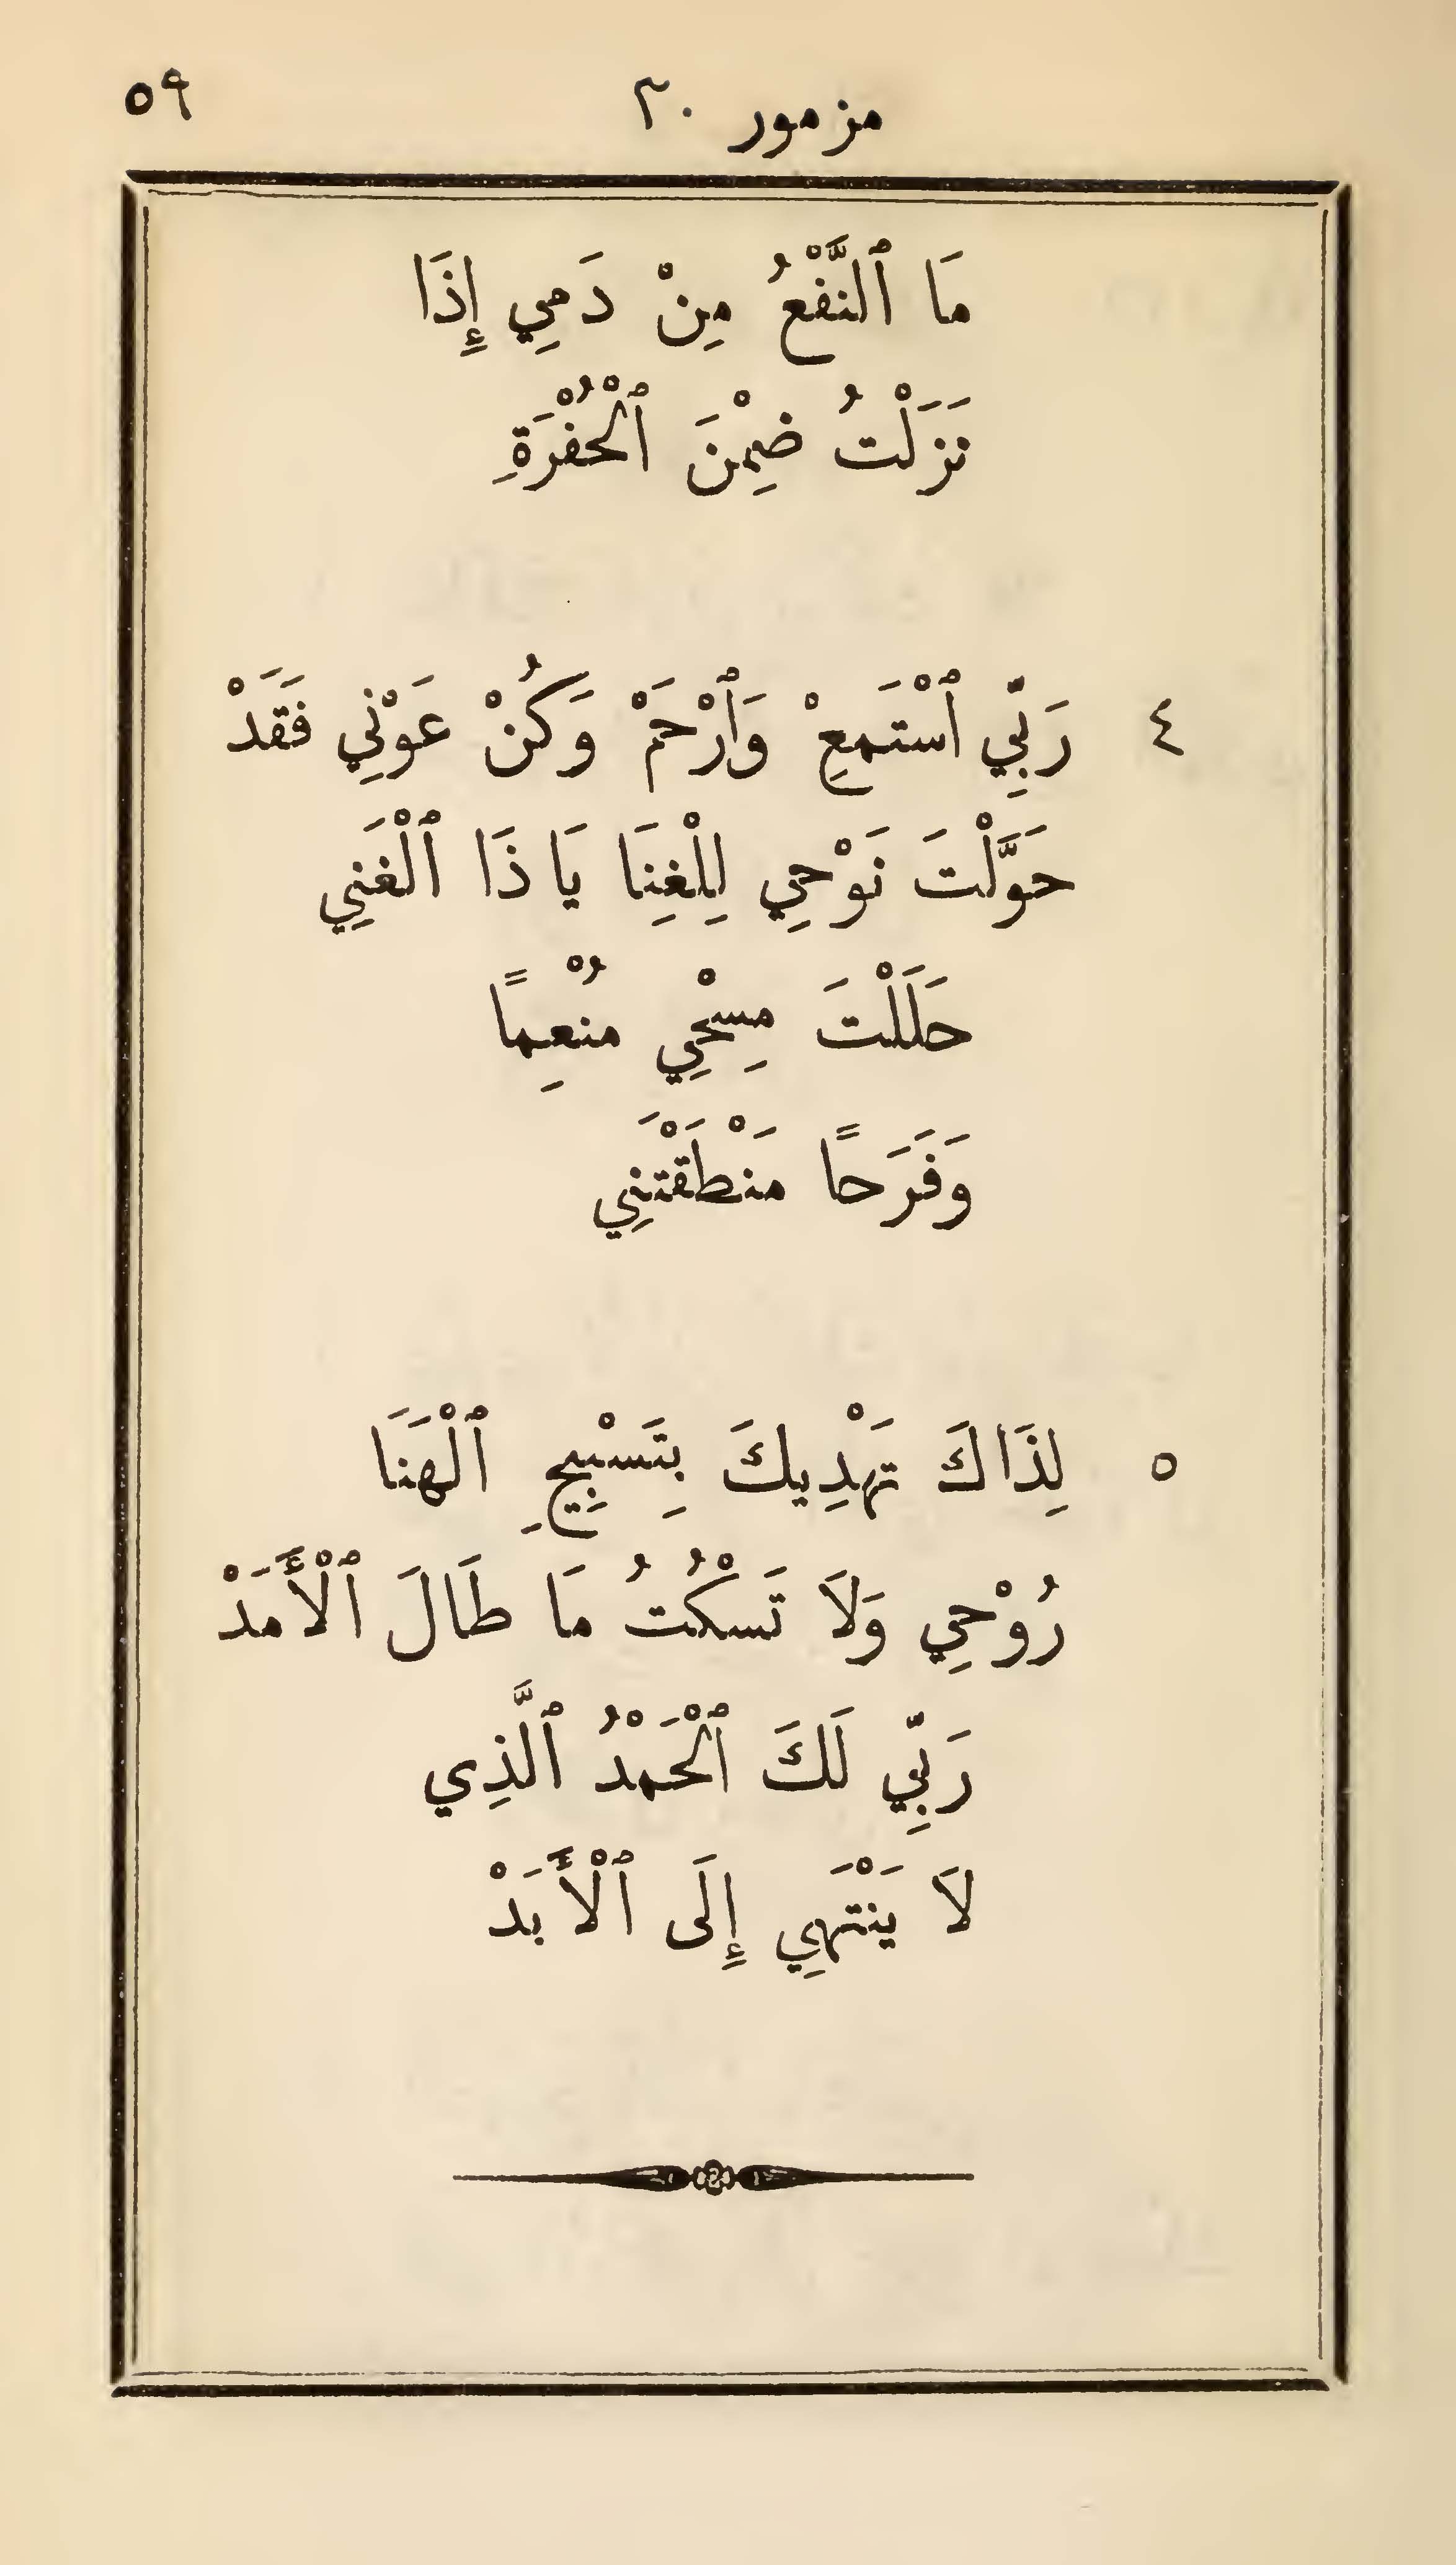 مزمور ٣٠ ٥٩
مَا ٱلنَّفْعُ مِنْ دَمِي إِذَا
نَزَلْتُ ضِمْنَ ٱلْحُفْرَةِ
٤ رَبِّي ٱسْتَمِعْ وَٱرْحَمْ وَكُنْ عَوْنِي فَقَدْ
حَوَّلْتَ نَوْحِي لِلْغِنَا يَا ذَا ٱلْغَنِي
حَلَلْتَ مِسْحِي مُنْعِمًا
وَفَرَحًا مَنْطَقْتَنِي
٥ لِذَاكَ تَهْدِيكَ بِتَسْبِيحِ ٱلْهَنَا
رُوْحِي وَلَا تَسْكُتُ مَا طَالَ ٱلْأَمَدْ
رَبِّي لَكَ ٱلْحَمْدُ ٱلَّذِي
لَا يَنْتَهِي إِلَى ٱلْأَبَدْ